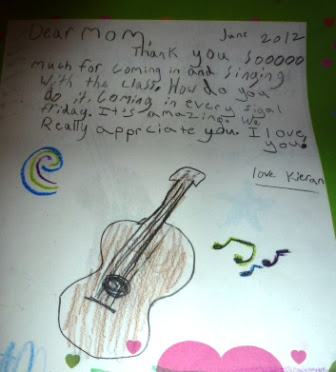 Dear Mom, June 2012
Thank you sooooo
much for coming in and singing
with the class. How do you
do it, coming in every sigal
friday. It's amazing. We
Really apprciate you. I love
you!
love Kieran